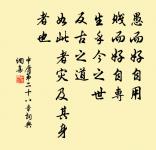 愚而好自用
賤而好自專
生乎今之世
反古之道
如此者災及其身
者也
中庸第二十八章詞典
網